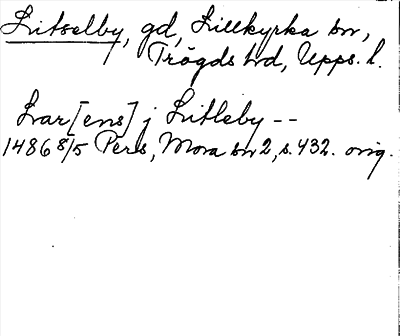 Litselby, gd, Lillkyrka sn,
Trögds hd, Upps. l.
Lar[ens] j Litleby --
1486 8/5 Perg, Mora sn 2, s. 432. orig.